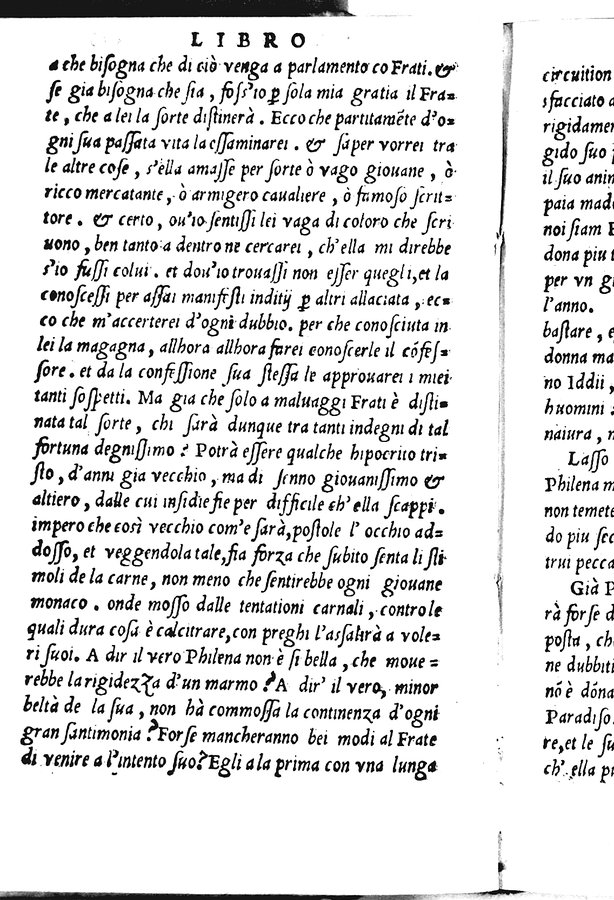 LIBRO
a che biſogna che di ciò venga a parlamento co Frati. &
ſe gia biſogna che ſia, foſs'io ꝑ ſola mia gratia il Fra=
te, che a lei la ſorte diſtinerà. Ecco che partitamēte d'o=
gni ſua paſſata vita la eſſaminarei. & ſaper vorrei tra
le altre coſe, s'ella amaſſe per ſorte ò vago giouane, ò
ricco mercatante, ò armigero caualiere, ò famoſo ſcrit=
tore. & certo, ou'io ſentiſſi lei vaga di coloro che ſcri
uono, ben tanto a dentro ne cercarei, ch'ella mi direbbe
s'io fuſſi colui. et dou'io trouaſſi non eſſer quegli, et la
conoſceſſi per aſſai manifeſti inditij ꝑ altri allaciata, ec=
co che m'accerterei d'ogni dubbio. per che conoſciuta in
lei la magagna, allhora allhora farei conoſcerle il cōfeſ=
ſore. et da la confeſſione ſua ſteſſa le approuarei i miei
tanti ſoſpetti. Ma gia che ſolo a maluaggi Frati è diſti=
nata tal ſorte, chi ſarà dunque tra tanti indegni di tal
fortuna degniſſimo? Potrà eſſere qualche hipocrito tri=
ſto, d'anni gia vecchio, ma di ſenno giouaniſſimo &
altiero, dalle cui inſidie fie per difficile ch'ella ſcappi.
impero che così vecchio com'e ſarà, poſtole l'occhio ad=
doſſo, et veggendola tale, fia forza che ſubito ſenta li ſti
moli de la carne, non meno che ſentirebbe ogni giouane
monaco. onde moſſo dalle tentationi carnali, contro le
quali dura coſa è calcitrare, con preghi l'aſſalirà a vole=
ri ſuoi. A dir il vero Philena non è ſi bella, che moue=
rebbe la rigidezza d'un marmo? A dir' il vero, minor
beltà de la ſua, non hà commoſſa la continenza d'ogni
gran ſantimonia? Forſe mancheranno bei modi al Frate
di venire a l'intento ſuo? Egli a la prima con vna lunga
circuition
sfacciato a
rigidamen
gido ſuo
il ſuo anin
paia mad
noi ſiam
dona piu t
per vn g
l'anno.
baſtare, e
donna ma
no Iddii,
huomini
naiura, n
Laſſo
Philena m
non temete
do piu ſec
trui pecca
Già P
rà forſe d
poſta, ch
ne dubbiti
nō è dōna
Paradiſo
re, et le ſu
ch'ella p